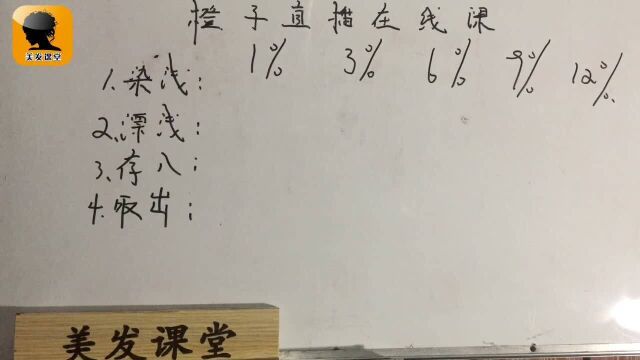 橙子直播在线课
1% 3% 6% 9% 12%
1.染浅：
2.漂浅：
3.存入：
4.吸出：
美发课堂
美发课堂